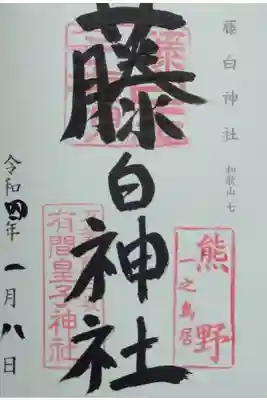 藤白神社
和歌山 七
藤白神社
熊野
一之鳥居
有間皇子神社
令和四年
一月八日